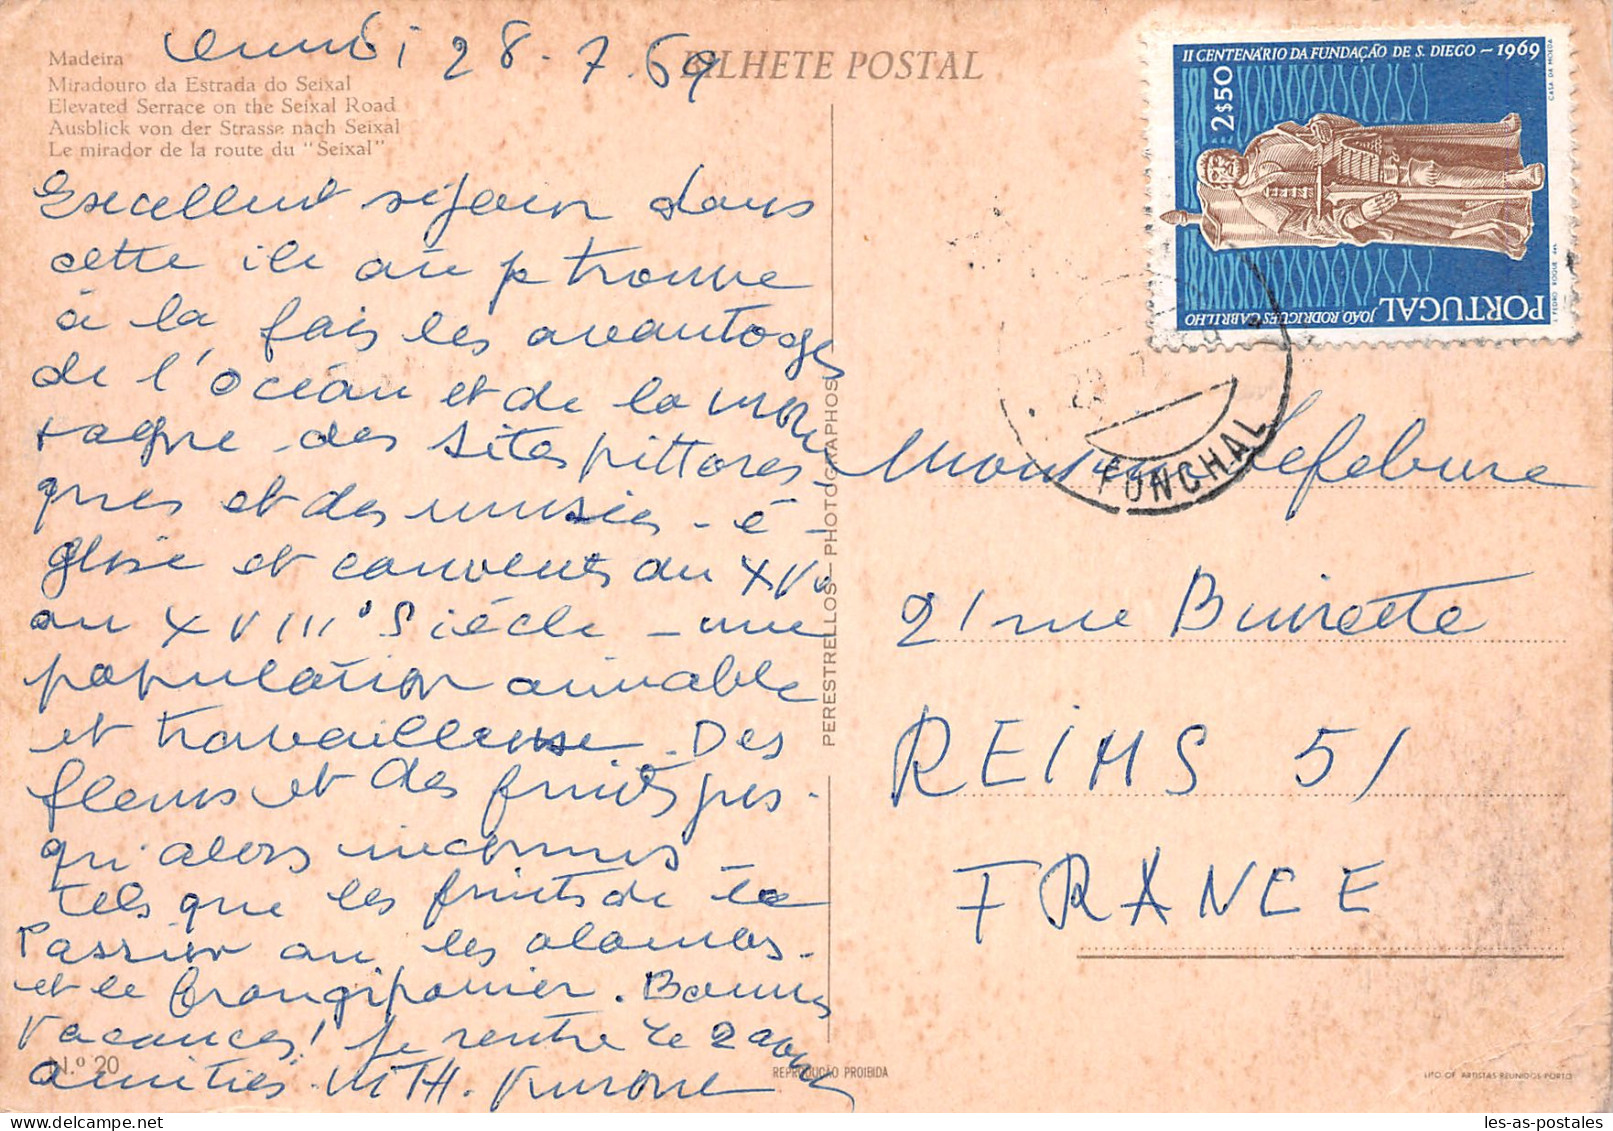 Madeira
Miradouro da Estrada do Seixal
Elevated Serrace on the Seixal Road
Ausblick von der Strasse nach Seixal
Le mirador de la route du "Seixal"
BILHETE POSTAL
Lundi 28.7.69
Excellent séjour dans
cette île où je trouve
à la fois les avantages
de l'océan et de la mon
tagne - des sites pittores-
ques et des musées - é-
glise et couvents du XVe
au XVIIIe siècle - une
population aimable
et travailleuse. Des
fleurs et des fruits jus-
qu'alors inconnus -
tels que les fruits de la
Passion ou les
et le frangipanier. Bonnes
vacances! Je rentre le 2 août
amitiés. MTH.
N.º 20
PERESTRELLOS - PHOTOGRAPHOS
REPRODUÇÃO PROIBIDA
II CENTENÁRIO DA FUNDAÇÃO DE S. DIEGO - 1969
CASA DA MOEDA
2$50
JOÃO RODRIGUES CABRILHO
PORTUGAL
J. PEDRO ROQUE
FUNCHAL
Monsieur Lefebvre
21 rue Buirette
REIMS 51
FRANCE
LITO OF. ARTISTAS REUNIDOS-PORTO
les-as-postales